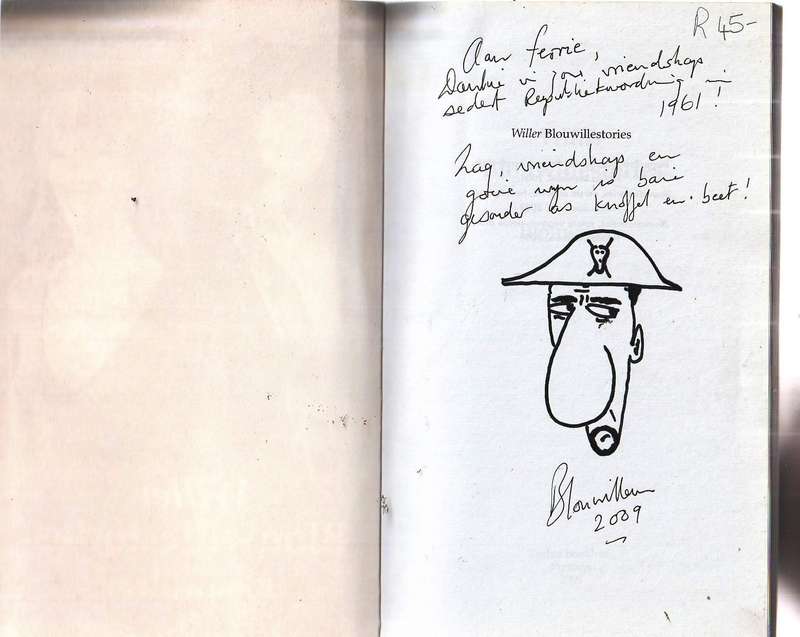 R 45-
Aan Ferrie,
Dankie vir jou vriendskap
sedert Republiekwording in
1961!
Willer Blouwillestories
Lag, vriendskap en
goeie wyn is baie
gesonder as knoffel en beet!
Blouwillem
2009